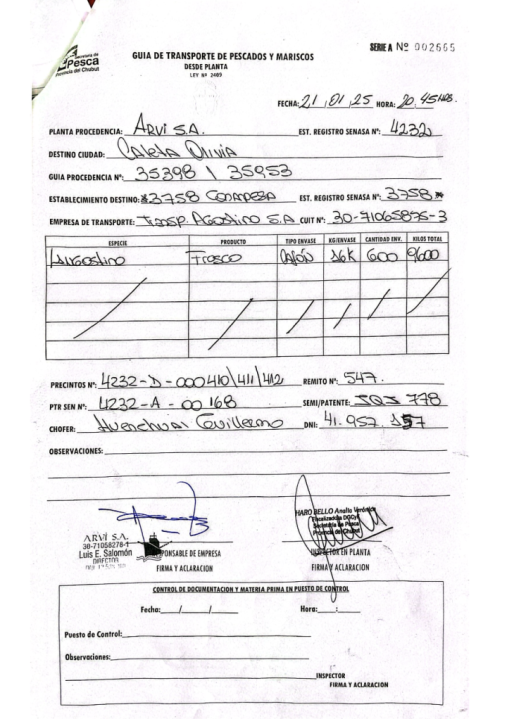 Secretaría de
Pesca
Provincia del Chubut
GUIA DE TRANSPORTE DE PESCADOS Y MARISCOS
DESDE PLANTA
LEY Nº 2489
SERIE A Nº 002665
FECHA: 21 / 01 / 25 HORA: 20.45 HRS.
PLANTA PROCEDENCIA: ARVI S.A. EST. REGISTRO SENASA Nº: 4232
DESTINO CIUDAD: Caleta Olivia
GUIA PROCEDENCIA Nº: 35398 \ 35953
ESTABLECIMIENTO DESTINO: *3758 Conarpesa EST. REGISTRO SENASA Nº: 3758*
EMPRESA DE TRANSPORTE: Trasp. Agostino S.A CUIT Nº: 30-71065875-3
ESPECIE PRODUCTO TIPO ENVASE KG/ENVASE CANTIDAD ENV. KILOS TOTAL
Langostino Fresco Cajón 16K 600 9600
PRECINTOS Nº: 4232-D-000410\411\412 REMITO Nº: 547.
PTR SEN Nº: 4232-A-00168 SEMI/PATENTE: SQS 778
CHOFER: Huenchual Guillermo DNI: 41.957.157
OBSERVACIONES:
ARVI S.A.
30-71056278-1
Luis E. Salomón
DIRECTOR
RESPONSABLE DE EMPRESA
FIRMA Y ACLARACION
HARO BELLO Analía Verónica
Fiscalizadora DGCyF
Secretaría de Pesca
Provincia del Chubut
INSPECTOR EN PLANTA
FIRMA Y ACLARACION
CONTROL DE DOCUMENTACION Y MATERIA PRIMA EN PUESTO DE CONTROL
Fecha: / / Hora: :
Puesto de Control:
Observaciones:
INSPECTOR
FIRMA Y ACLARACION